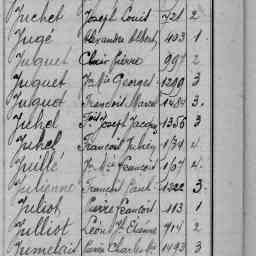 Juchet Joseph Louis 721 2
Jugé Alexandre Albert 1103 1
Juguet Clair Pierre 997 2
Juguet Georges 1299 3
Juguet François Marie 1484 3.
Juhel Fois Joseph Jacques 1356 3
Juhel François Aubin 1134 4
Juillé François 167 4
Julienne François Paul 1222 3.
Juliot Pierre François 113 1
Julliot Léon Etienne 914 2
Jumelais Pierre Charles Me 1493 3